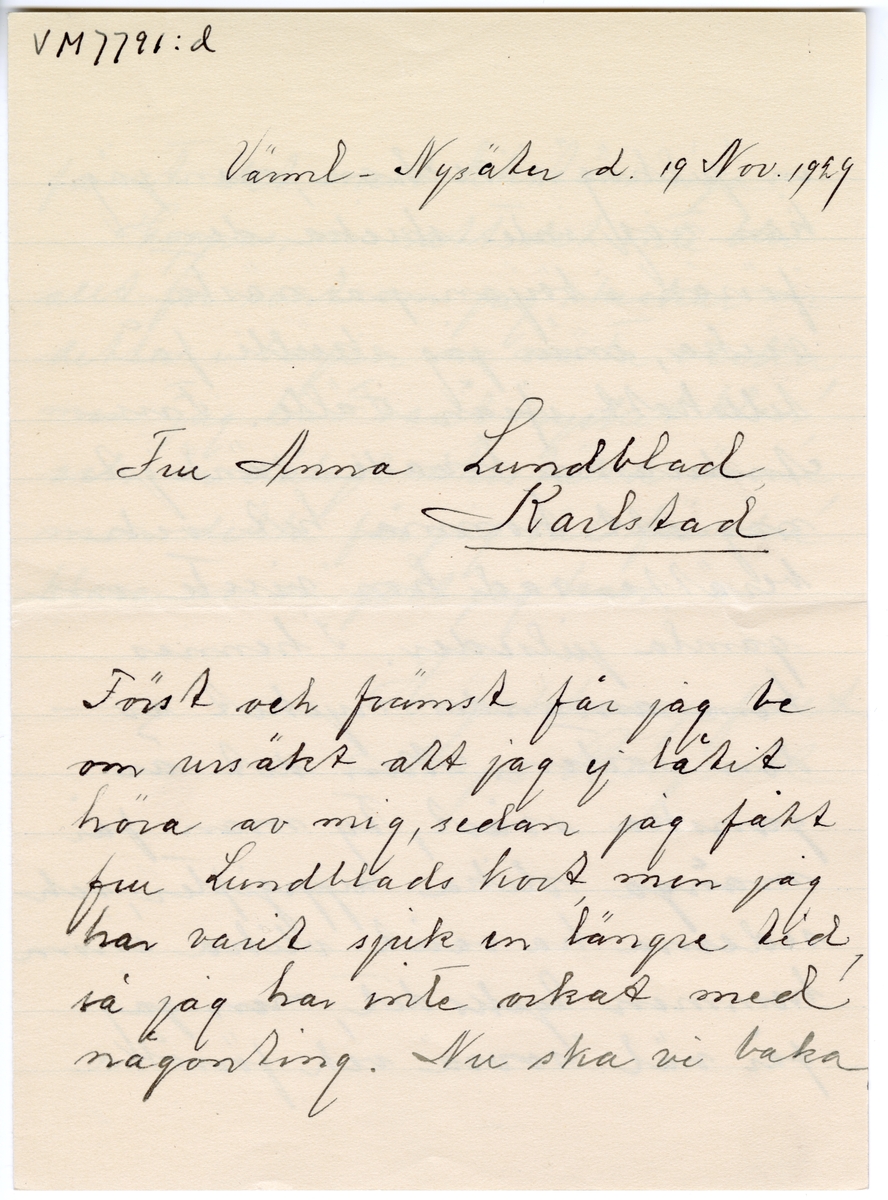 VM7791:d
Värml - Nysäter d. 19 Nov. 1929
Fru Anna Lundblad,
Karlstad
Först och främst får jag be
om ursäkt att jag ej låtit
höra av mig, sedan jag fått
fru Lundblads kort, men jag
har varit sjuk en längre tid,
så jag har inte orkat med
någonting. Nu ska vi baka